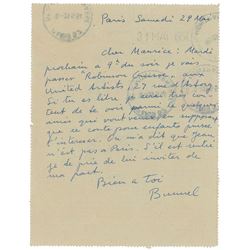 Paris Samedi 29 Mai
Cher Maurice: Mardi
prochain a 9h du soir je vais
passer "Robinson Crusoe", aux
United Artists, 27 rue d'Astorg.
Si tu es libre je serai très con-
tent de te voir parmi le quelques
amis que vont venir en supposant
que ce conte pour enfants puisse
t'interesser. On m'a dit que Jean
n'est pas a Paris. S'il est rentré
je te prie de lui inviter de
ma part.
Bien a toi
Bunuel